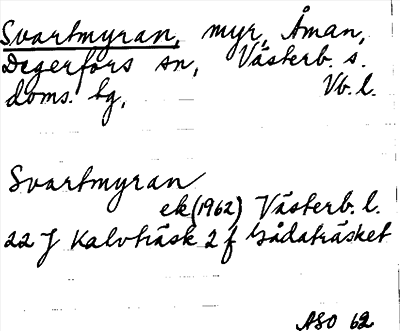 Svartmyran, myr, Åman,
Degerfors sn, Västerb. s.
doms. tg, Vb. l.
Svartmyran
ek (1962) Västerb. l.
22 J Kalvträsk 2 f Gådaträsket
ASO 62